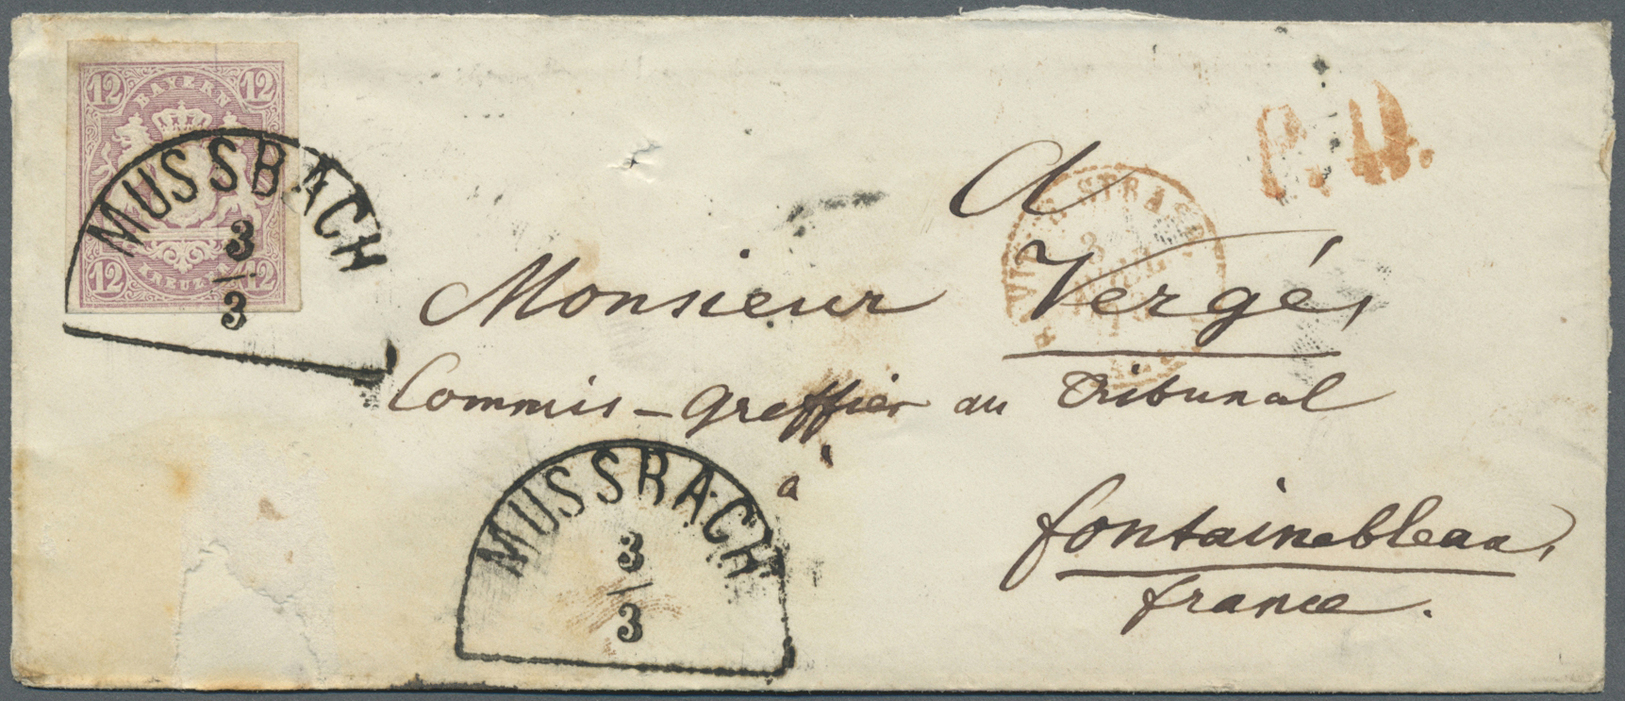 12 12
BAYERN
12 KREUZER 12
MUSSBACH
3
3
P.D.
A
Monsieur Vergé,
Commis-greffier au Tribunal
à
fontainebleau,
france.
MUSSBACH
3
3